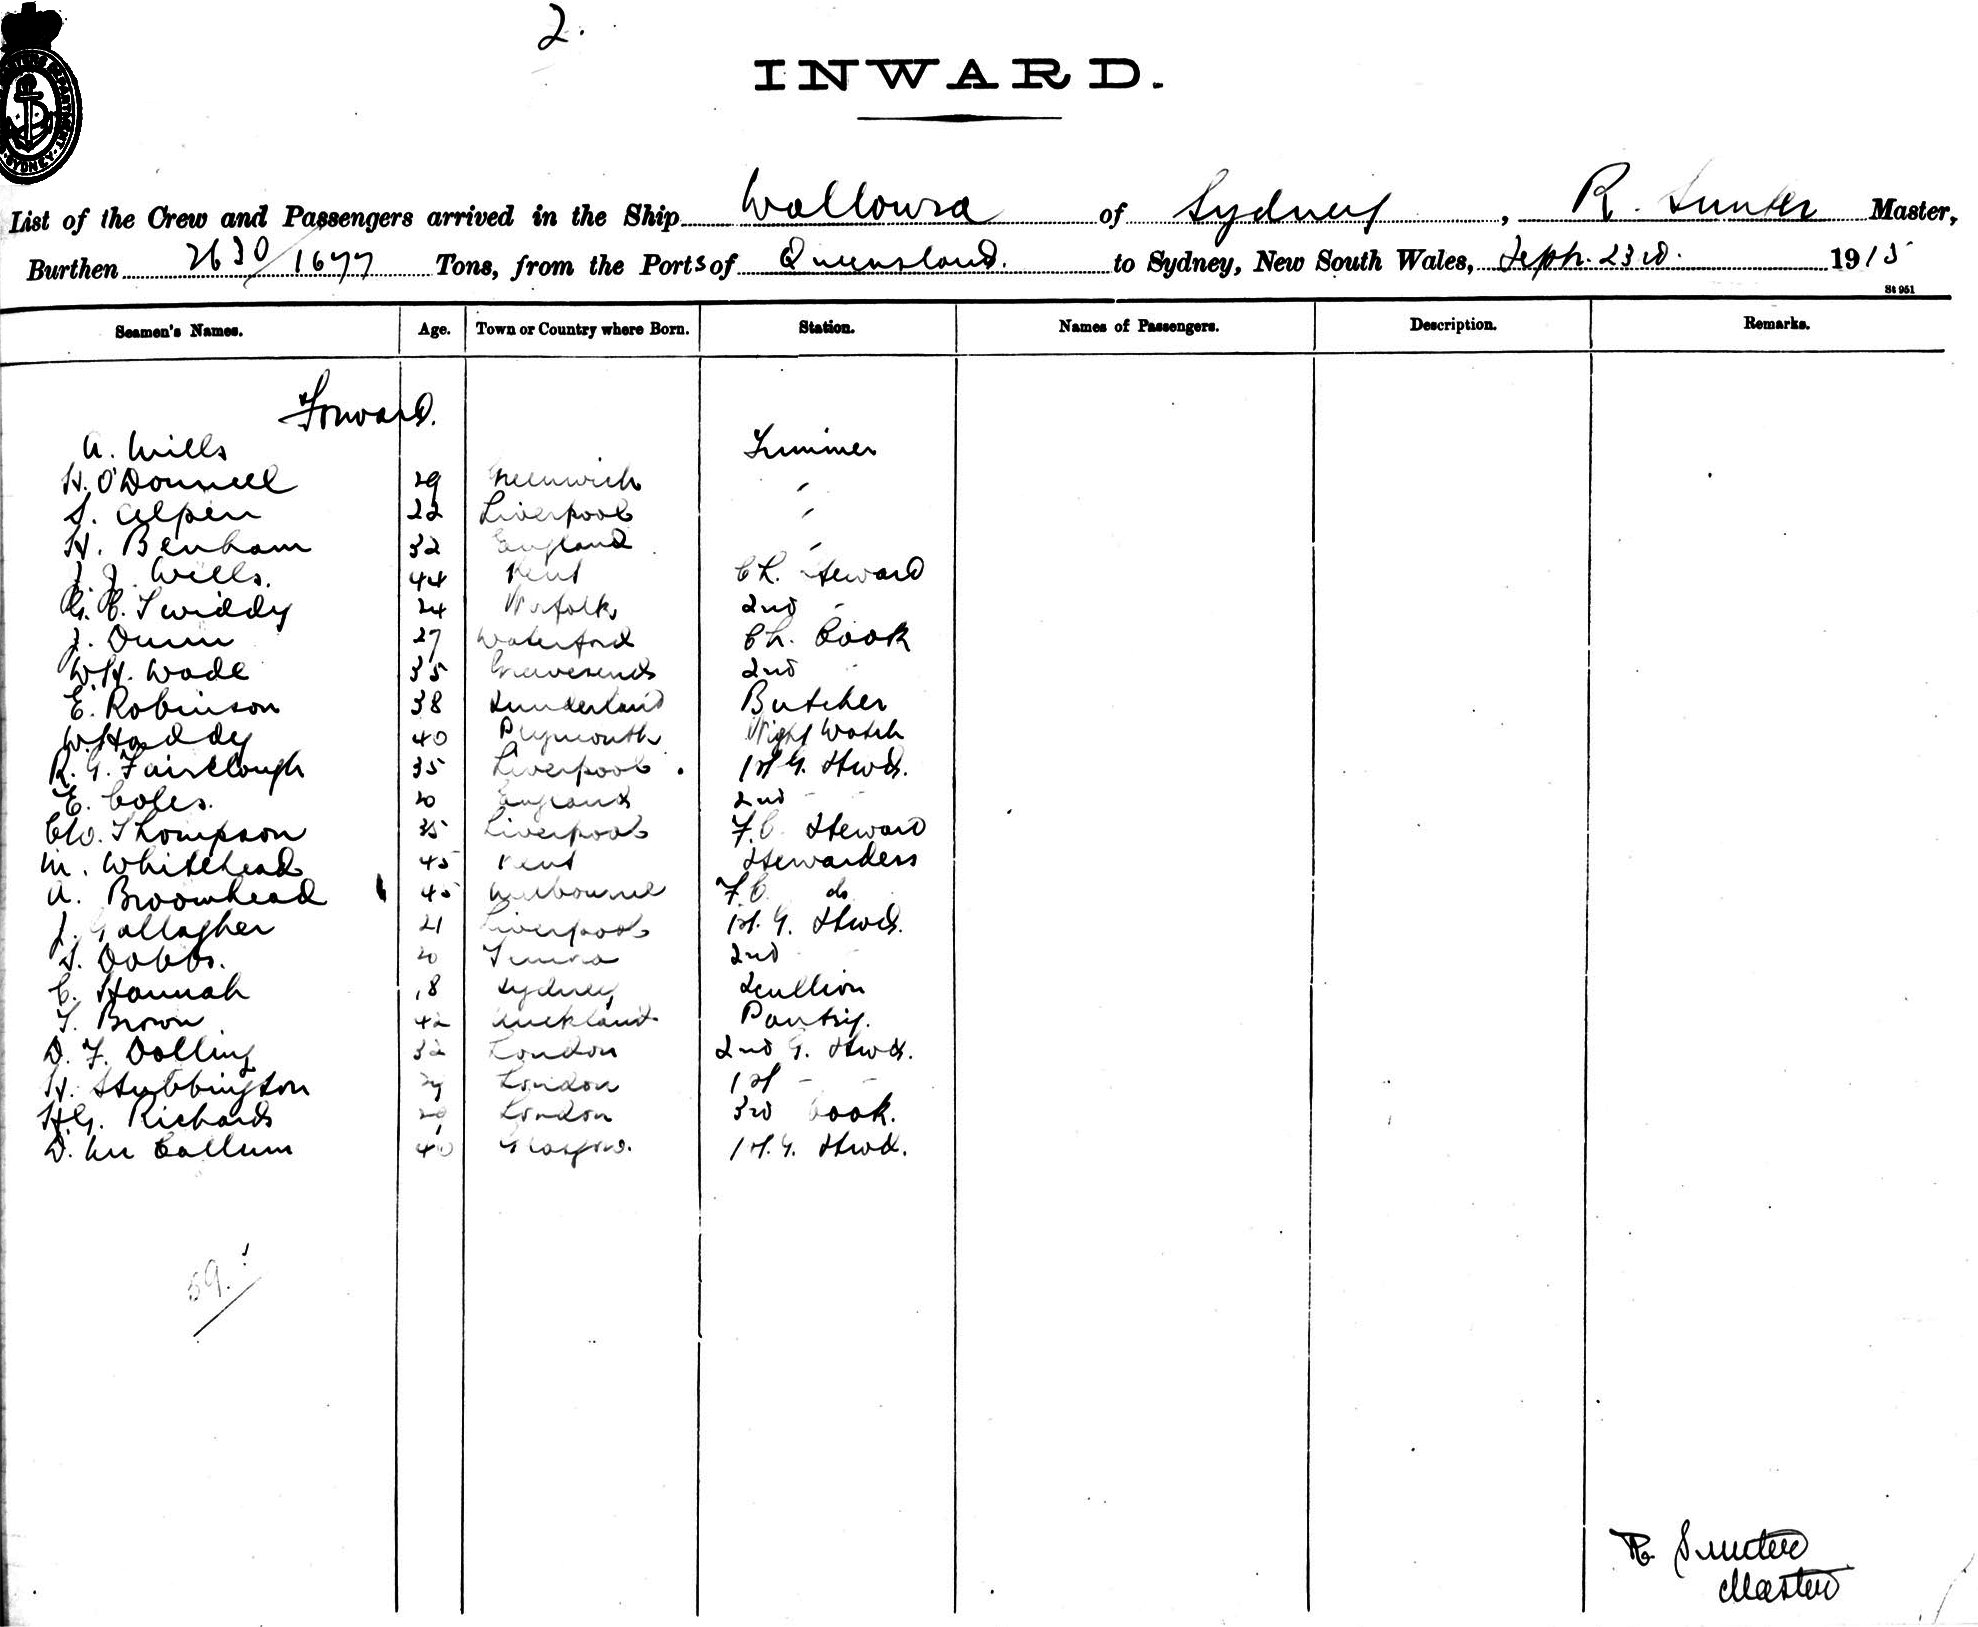 2.
INWARD.
List of the Crew and Passengers arrived in the Ship Wollowra of Sydney, R. Sunter Master,
Burthen 2630/1677 Tons, from the Ports of Queensland. to Sydney, New South Wales, Septr. 23rd. 1915
St 951
Seamen's Names. Age. Town or Country where Born. Station. Names of Passengers. Description. Remarks.
Forward.
A. Mills Trimmer
H. O'Donnell 29 Greenwich "
S. Alpen 22 Liverpool "
H. Benham 32 England "
J. J. Wills. 44 Kent Ch. Steward
24 Norfolk 2nd -
J. Dunn 27 Waterford Ch. Cook
W.H. Wade 35 Gravesend 2nd -
E. Robinson 38 Sunderland Butcher
W. Haddy 40 Plymouth Night Watch
R. G. Fairclough 35 Liverpool. 1st G. Stwd.
E. Coles. 20 England 2nd - -
C.W. Thompson 35 Liverpool F.C. Steward
M. Whitehead 45 Kent Stewardess
A. Broomhead 45 Melbourne F.C. do
J. Gallagher 21 Liverpool 1st. G. Stwd.
T. Dobbs. 20 2nd
C. Hannah 18 Sydney Scullion
T. Brown 42 Auckland Pantry.
D. F. Dolling 32 London 2nd G. Stwd.
H. Stubbington 29 London 1st - -
H.G. Richards London 3rd Cook.
D. Mc Callum 40 Glasgow. 1st. G. Stwd.
59.
R. Sunter
Master